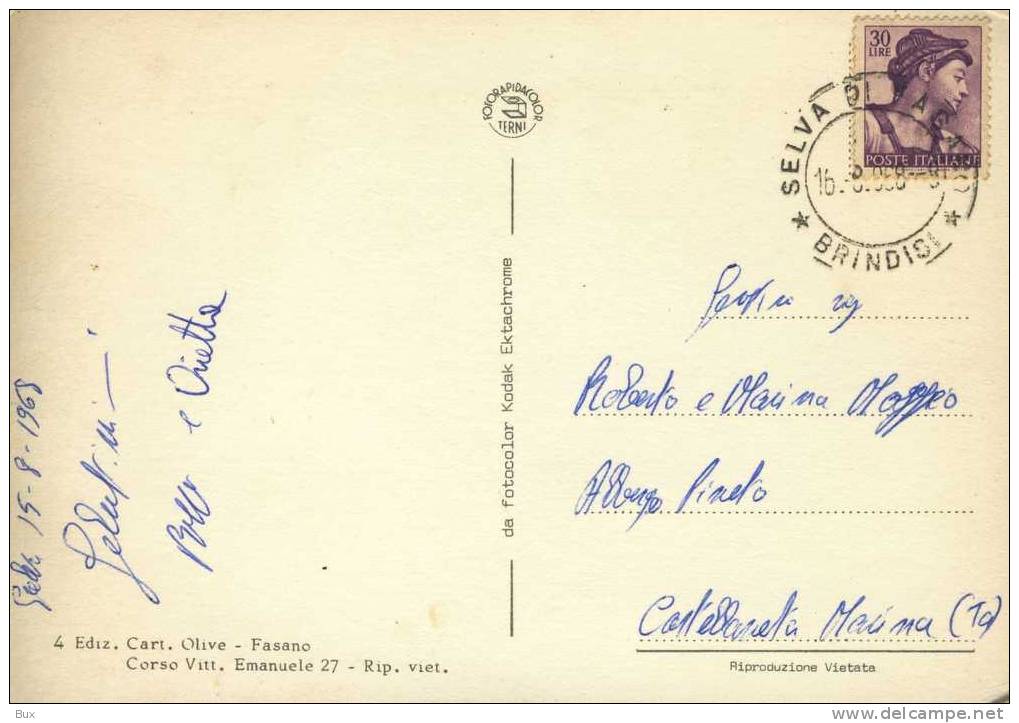 30
LIRE
POSTE ITALIANE
SELVA DI FASANO
BRINDISI
FOTORAPIDACOLOR
TERNI
da fotocolor Kodak Ektachrome
15-8-1968
e Orietta
Roberto e Marina Maffeo
Albergo Pineto
Castellaneta Marina (Ta)
4 Ediz. Cart. Olive - Fasano
Corso Vitt. Emanuele 27 - Rip. viet.
Riproduzione Vietata
Bux
www.delcampe.net